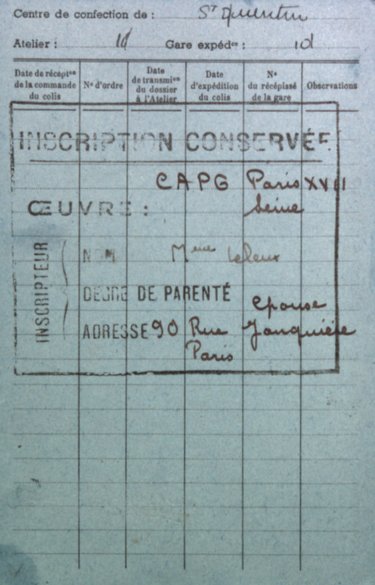 Centre de confection de : St Quentin
Atelier : id Gare expédre : id
Date de récépon de la commande du colis
N° d'ordre
Date de transmion du dossier à l'Atelier
Date d'expédition du colis
N° du récépissé de la gare
Observations
INSCRIPTION CONSERVÉE
CAPG Paris XVII
ŒUVRE : Seine
INSCRIPTEUR
NOM Mme Leleux
DEGRÉ DE PARENTÉ épouse
ADRESSE 90 Rue Jonquière
Paris